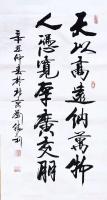 天以高遠納萬物
人憑寬厚廣交朋
辛丑仲春於北京劉利